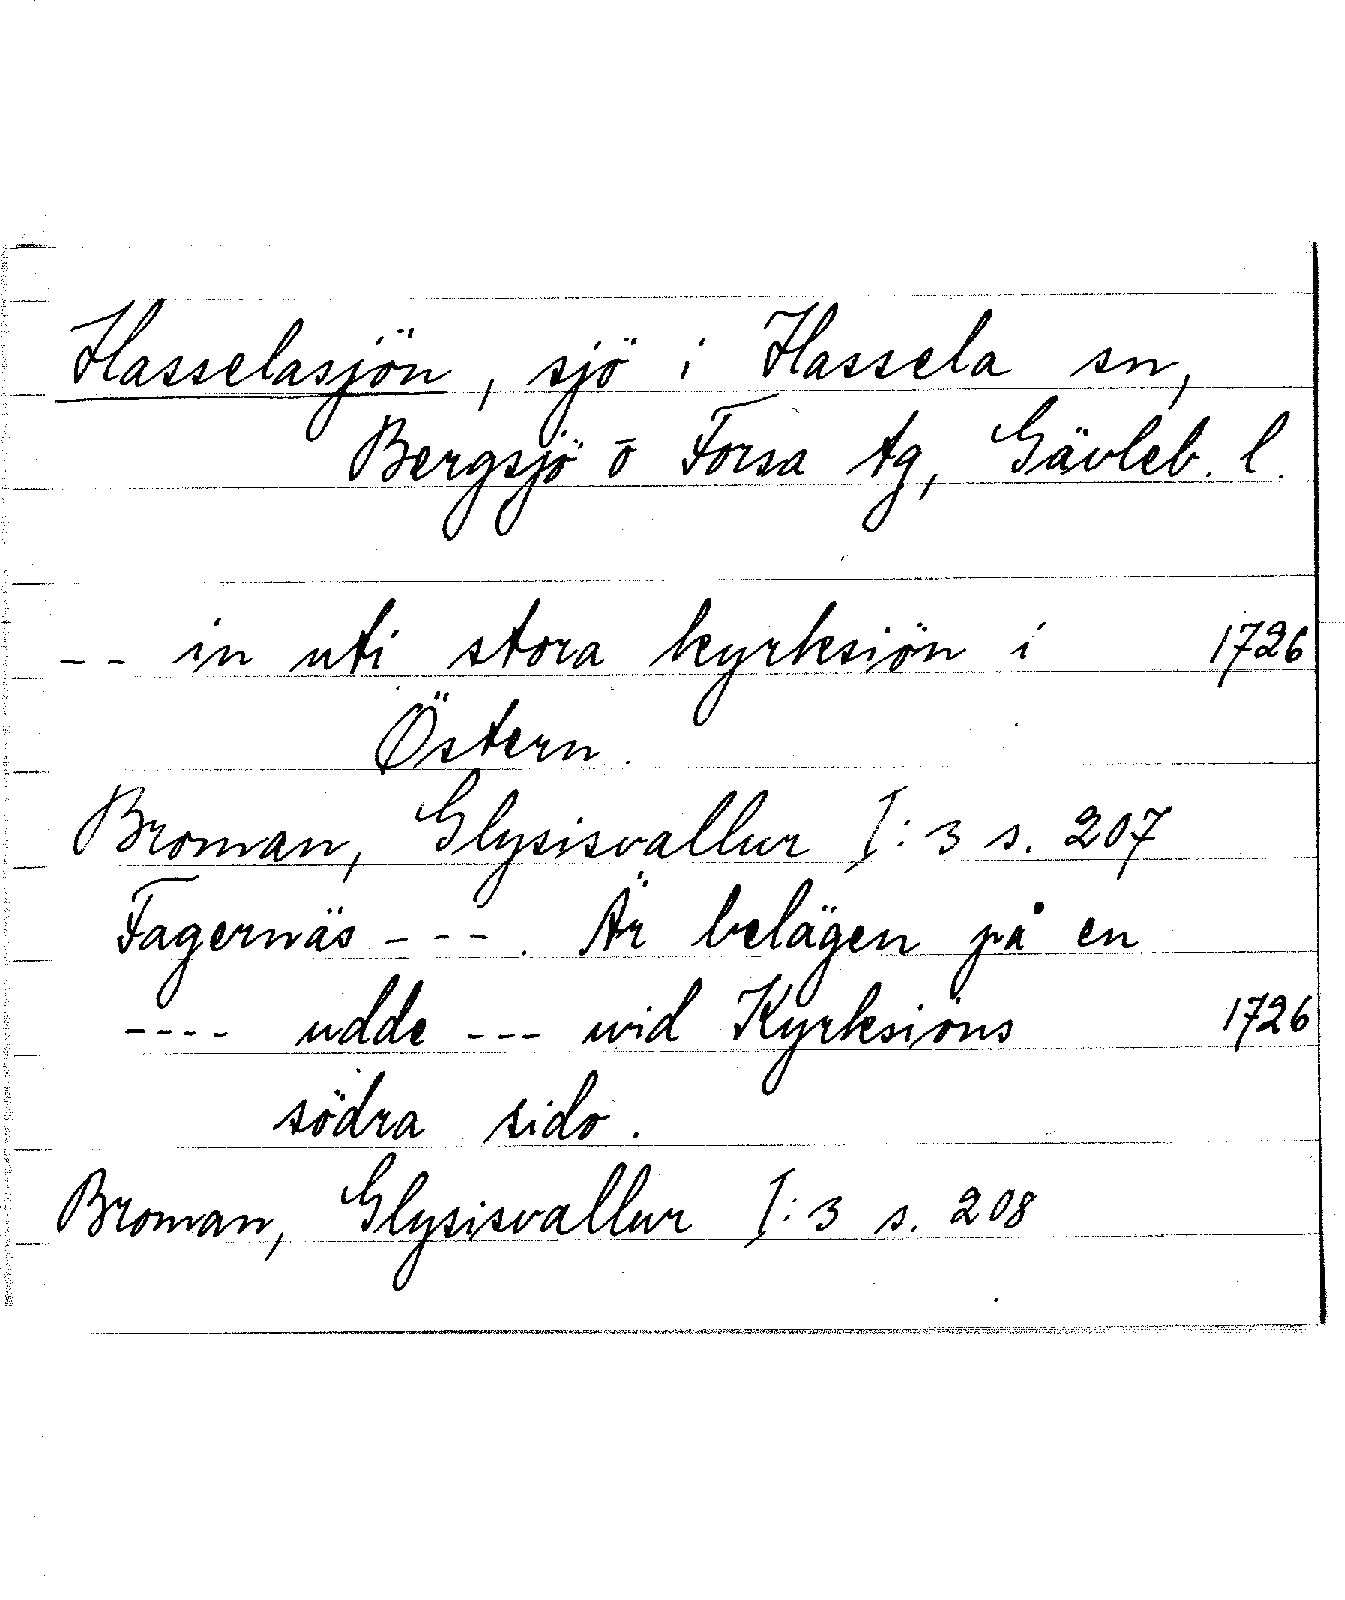 Hasselasjön, sjö i Hassela sn,
Bergsjö o Forsa tg, Gävleb. l.
-- in uti stora kyrksiön i 1726
Östern.
Broman, Glysisvallur I:3 s. 207
Fagernäs ---. Är belägen på en
---- udde --- wid Kyrksiöns 1726
södra sido.
Broman, Glysisvallur I:3 s. 208